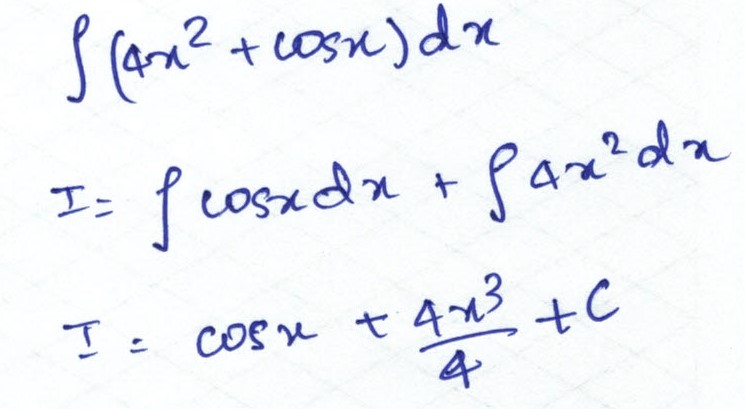 ∫(4x² + cosx)dx
I = ∫cosxdx + ∫4x²dx
I = cosx + 4x³/4 + C